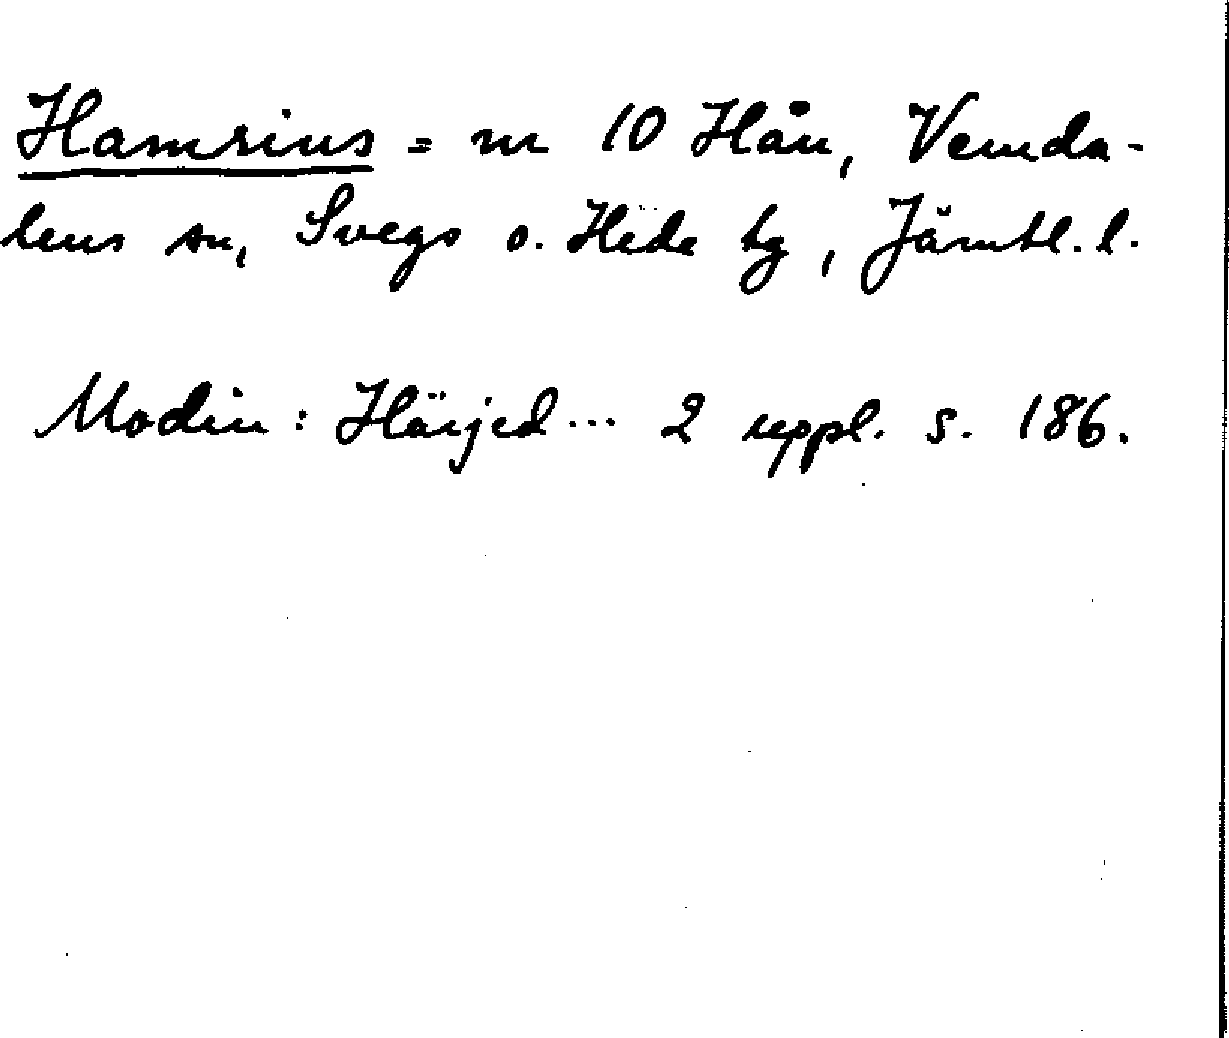 Hamrius = nr 10 Hån, Vemda-
lens sn, Svegs o. Hede tg, Jämtl. l.
Modin: Härjed... 2 uppl. s. 186.